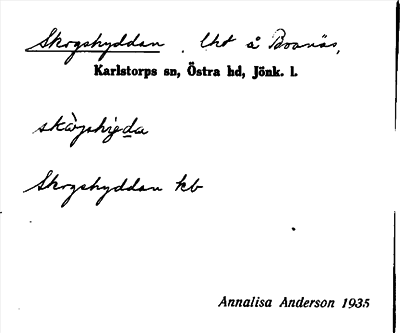 Skogshyddan . Uht å Boanäs,
Karlstorps sn, Östra hd, Jönk. l.
skògshyda
Skogshyddan kb
Annalisa Anderson 1935